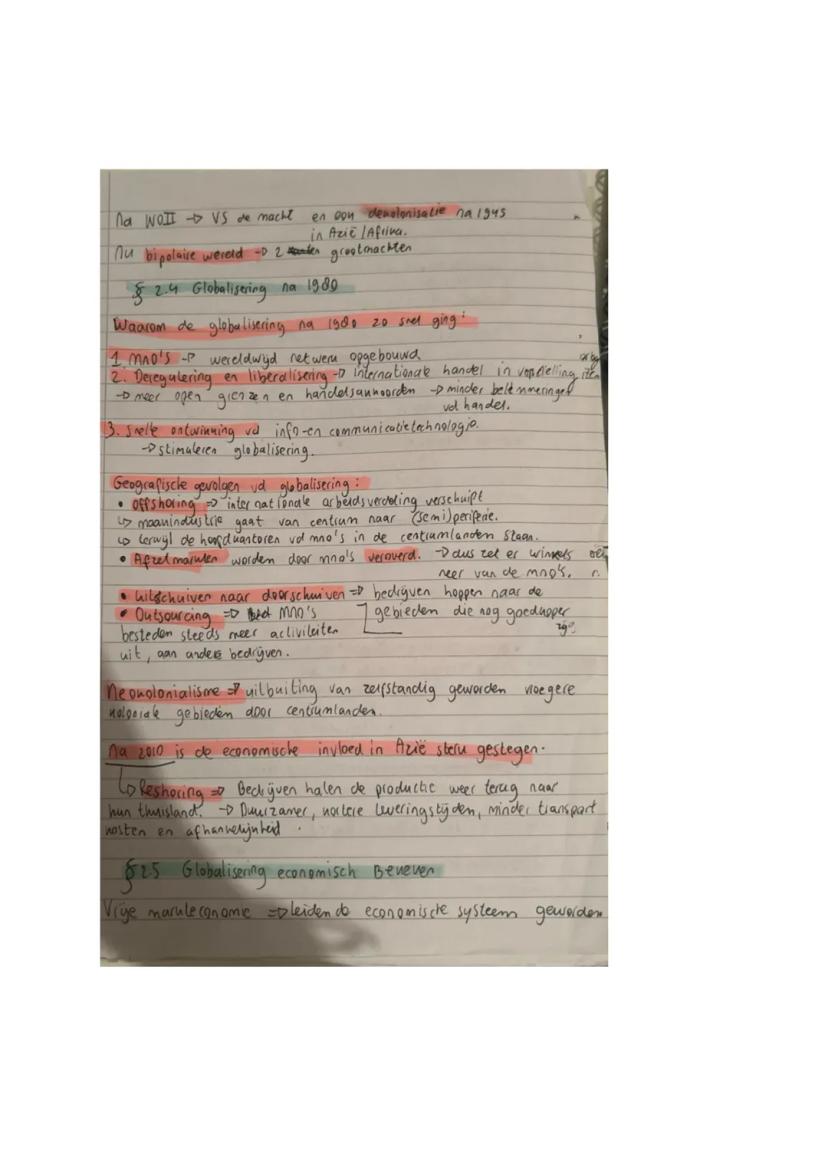 Na WOII → VS de macht en ook dekolonisatie na 1945
in Azië / Afrika.
Nu bipolaire wereld → 2 grootmachten
§ 2.4 Globalisering na 1980
Waarom de globalisering na 1980 zo snel ging:
1. MNO's → wereldwijd netwerk opgebouwd
2. Deregulering en liberalisering → internationale handel in versnelling
→ meer open grenzen en handelsakkoorden → minder belemmeringen
vd handel.
3. Snelle ontwikking vd info- en communicatietechnologie.
→ stimuleren globalisering.
Geografische gevolgen vd globalisering:
• offshoring ⇒ internationale arbeidsverdeling verschuift
↳ maakindustrie gaat van centrum naar (semi)periferie.
↳ terwijl de hoofdkantoren vd mno's in de centrumlanden staan.
• Afzetmarkten worden door mno's veroverd. → dus zet er winkels
neer van de mno's.
• Uitschuiven naar doorschuiven ⇒ bedrijven hoppen naar de
gebieden die nog goedkoper
zijn
• Outsourcing ⇒ MNO's
besteden steeds meer activiteiten
uit, aan andere bedrijven.
Neokolonialisme ⇒ uitbuiting van zelfstandig geworden vroegere
koloniale gebieden door centrumlanden.
Na 2010 is de economische invloed in Azië sterk gestegen.
↳ Reshoring ⇒ Bedrijven halen de productie weer terug naar
hun thuisland. → Duurzamer, kortere leveringstijden, minder transport
kosten en afhankelijkheid.
§ 2.5 Globalisering economisch Bekeken
Vrije markteconomie ⇒ leidende economische systeem geworden